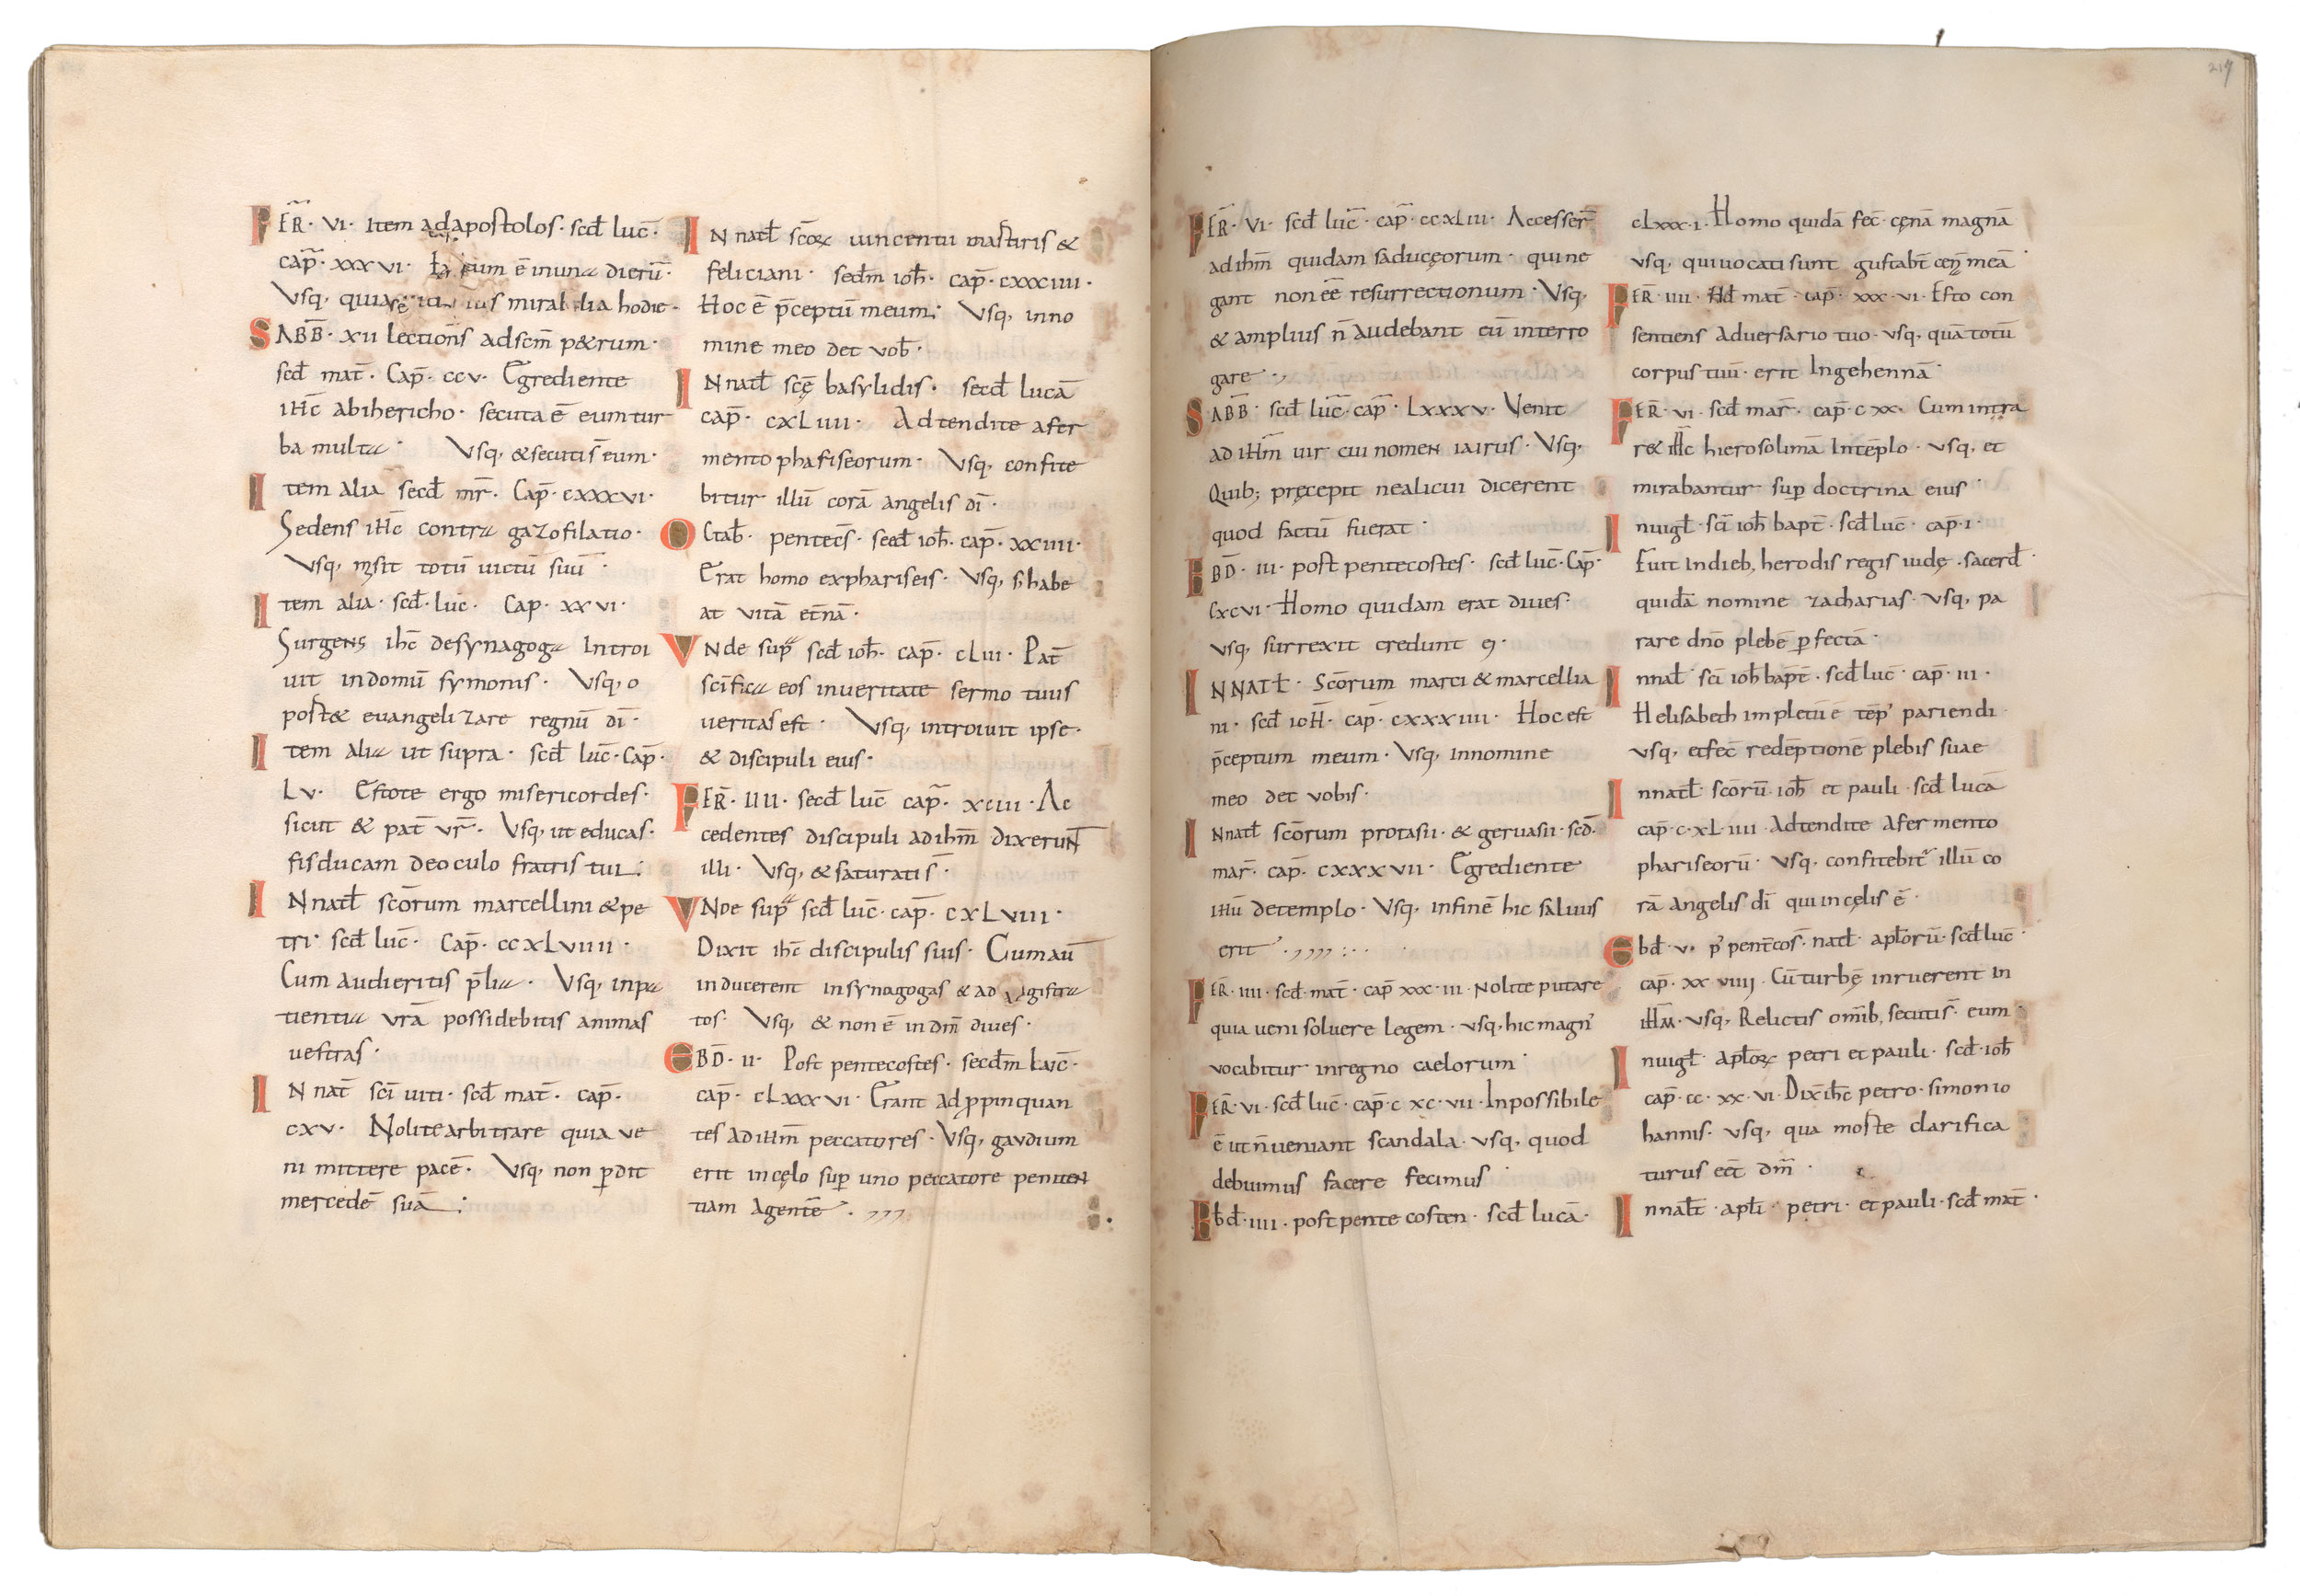 FER̄· VI· Item ad apostolos· scđ luc̄·
cap̄· xxxvi· eum ē in una dierū·
Vsq, quia mirabilia hodie·
SABB̄· XII lectioñs ad scm̄ p&rum·
scđ mat̄· Cap̄· ccv· Egrediente
ihc̄ abihericho· secuta ē eum tur
ba multa· Vsq, & secutis̄ eum·
Item alia secđ mr̄· Cap̄· cxxxvi·
Sedens ihc̄ contra gazofilatio·
Vsq, misit totū uictū suū·
Item alia· scđ· luc̄· Cap· xxvi·
Surgens ihc̄ desynagoga Introi
uit indomū symonis· Vsq, o
post& evangelizare regnū dī·
Item alia ut supra· scđ luc̄· Cap̄·
Lv· Estote ergo misericordes·
sicut & pat̄ vr̄· Vsq, ut educas·
fisducam deoculo fratris tui·
IN natł scōrum marcellini & pe
tri· scđ luc̄· Cap̄· ccxLviiii·
Cum audieritis p̄lia· Vsq, inpa
tientia vrā possidebitis animas
vestras·
IN nat̄ scī uiti· scđ mat̄· cap̄·
cxv· Nolite arbitrare quia ve
ni mittere pacē· Vsq, non pdit
mercedē suā·
IN natł scōꝝ uincentii mastiris &
feliciani· sedm̄ ioħ· cap̄· cxxxiiii·
Hoc ē p̄ceptū meum· Vsq, inno
mine meo det vob̄·
IN natł scē basylidis· secđ lucā
cap̄· cxLiiii· Adtendite afer
mento phafiseorum· Vsq, confite
bitur illū corā angelis dī·
OCtab̄· pentec̄s· secđ ioħ· cap̄· xxiiii·
Erat homo expharisEis· Vsq, s; habe
at vitā et̄nā·
VNde sup̄ scđ ioħ· cap̄· cLiii· Pat̄
sc̄ifica eos inueritate sermo tuus
ueritas est· Vsq, introiuit ipse·
& discipuli eius·
FER̄· IIII· secđ luc̄ cap̄· xciii· Ac
cedentes discipuli ad ihm̄ dixerunt̄
illi· Vsq, & saturatis̄·
VNde sup̄ scđ luc̄· cap̄· cxLviii·
Dixit ihc̄ discipulis suis· Cum aū
inducerent insynagogas & ad gistra
tos· Vsq, & non ē in dm̄ diues·
EBD̄· II· Post pentecostes· secdm̄ Luc̄·
cap̄· cLxxxvi· Erant adppinquan
tes ad ihm̄ peccatores· Vsq, gaudium
erit incęlo sup uno peccatore peniten
tiam agentē·
FER̄· VI· scđ luc̄· cap̄· ccxLiii· Accesser̄
ad ihm̄ quidam saducęorum· qui ne
gant non ēē resurrectionum· Vsq,
& amplius n̄ audebant eū interro
gare·
SABB̄· scđ luc̄· cap̄· Lxxxv· Venit
ad ihm̄ uir cui nomen iairus· Vsq,
Quib; pręcepit nealicui dicerent
quod factū fuerat·
EBD̄· III· post pentecostes· scđ luc̄· Cap̄·
Cxcvi· Homo quidam erat diues·
vsq, surrexit credunt ei·
INNATł· Scōrum marci & marcellia
ni· scđ ioħ· cap̄· cxxxiiii· Hoc est
p̄ceptum meum· Vsq, Innomine
meo det vobis·
INnatł scōrum protasii· & geruasii· scđ·
mar̄· cap̄· cxxxvii· Egrediente
ihū detemplo· Vsq, infinē hic saluus
erit·
FER̄· IIII· scđ· mat̄· cap̄ xxx·iii· Nolite putare
quia ueni soluere legem· vsq, hic magn'
vocabitur inregno caelorum·
FER̄· VI· scđ luc̄· cap̄· c xc·vii· Inpossibile
ē ut n̄ ueniant scandala· vsq, quod
debuimus facere fecimus
Ebđ· IIII· post pente costen· scđ lucā·
cLxxx·i· Homo quidā fec̄· cęnā magnā
vsq, qui uocati sunt gustab̄t cen̄ meā
FER̄· IIII· Scđ mat̄· cap̄· xxx·vi· Esto con
sentiens Adversario tuo· vsq, quā totū
corpus tuū· erit Ingehennā·
FER̄· VI· scđ mar̄· cap̄· c xx· Cum intra
r& ihc̄ hierosolimā Intēplo· vsq, et
mirabantur sup doctrina eius·
Inuigł· scī ioħ bapt̄· scđ luc̄· cap̄· i·
Fuit Indieb, herodis regis iudę· sacerđ·
quidā nomine zacharias· vsq, pa
rare dnō plebē pfectā·
Innatł· scī ioħ bap̄t· scđ luc̄· cap̄· iii·
Helisabeth impletū ē tēp' pariendi·
vsq, et fec̄ redēptionē plebis suae
Innatł· scōrū· ioħ et pauli· scđ lucā
cap̄· c·xL·iiii· Adtendite afermento
phariseorū· vsq, confitebit̄ illū co
rā angelis dī qui incęlis ē·
Ebđ· v· p' pent̄cos̄· natł· apłorū· scđ luc̄·
cap̄· xx viiij· Cū turbę inruerent in
ihm̄· vsq, Relictis om̄ib, secutis̄· eum·
Inuigł· apłoꝝ petri et pauli· scđ· ioħ
cap̄· cc· xx·vi· Dix̄ ihc̄ petro· simon io
hannis· vsq, qua moste clarifica
turus ec̄t dm̄·
Innałt· apłi· petri· et pauli· scđ mat̄·
217